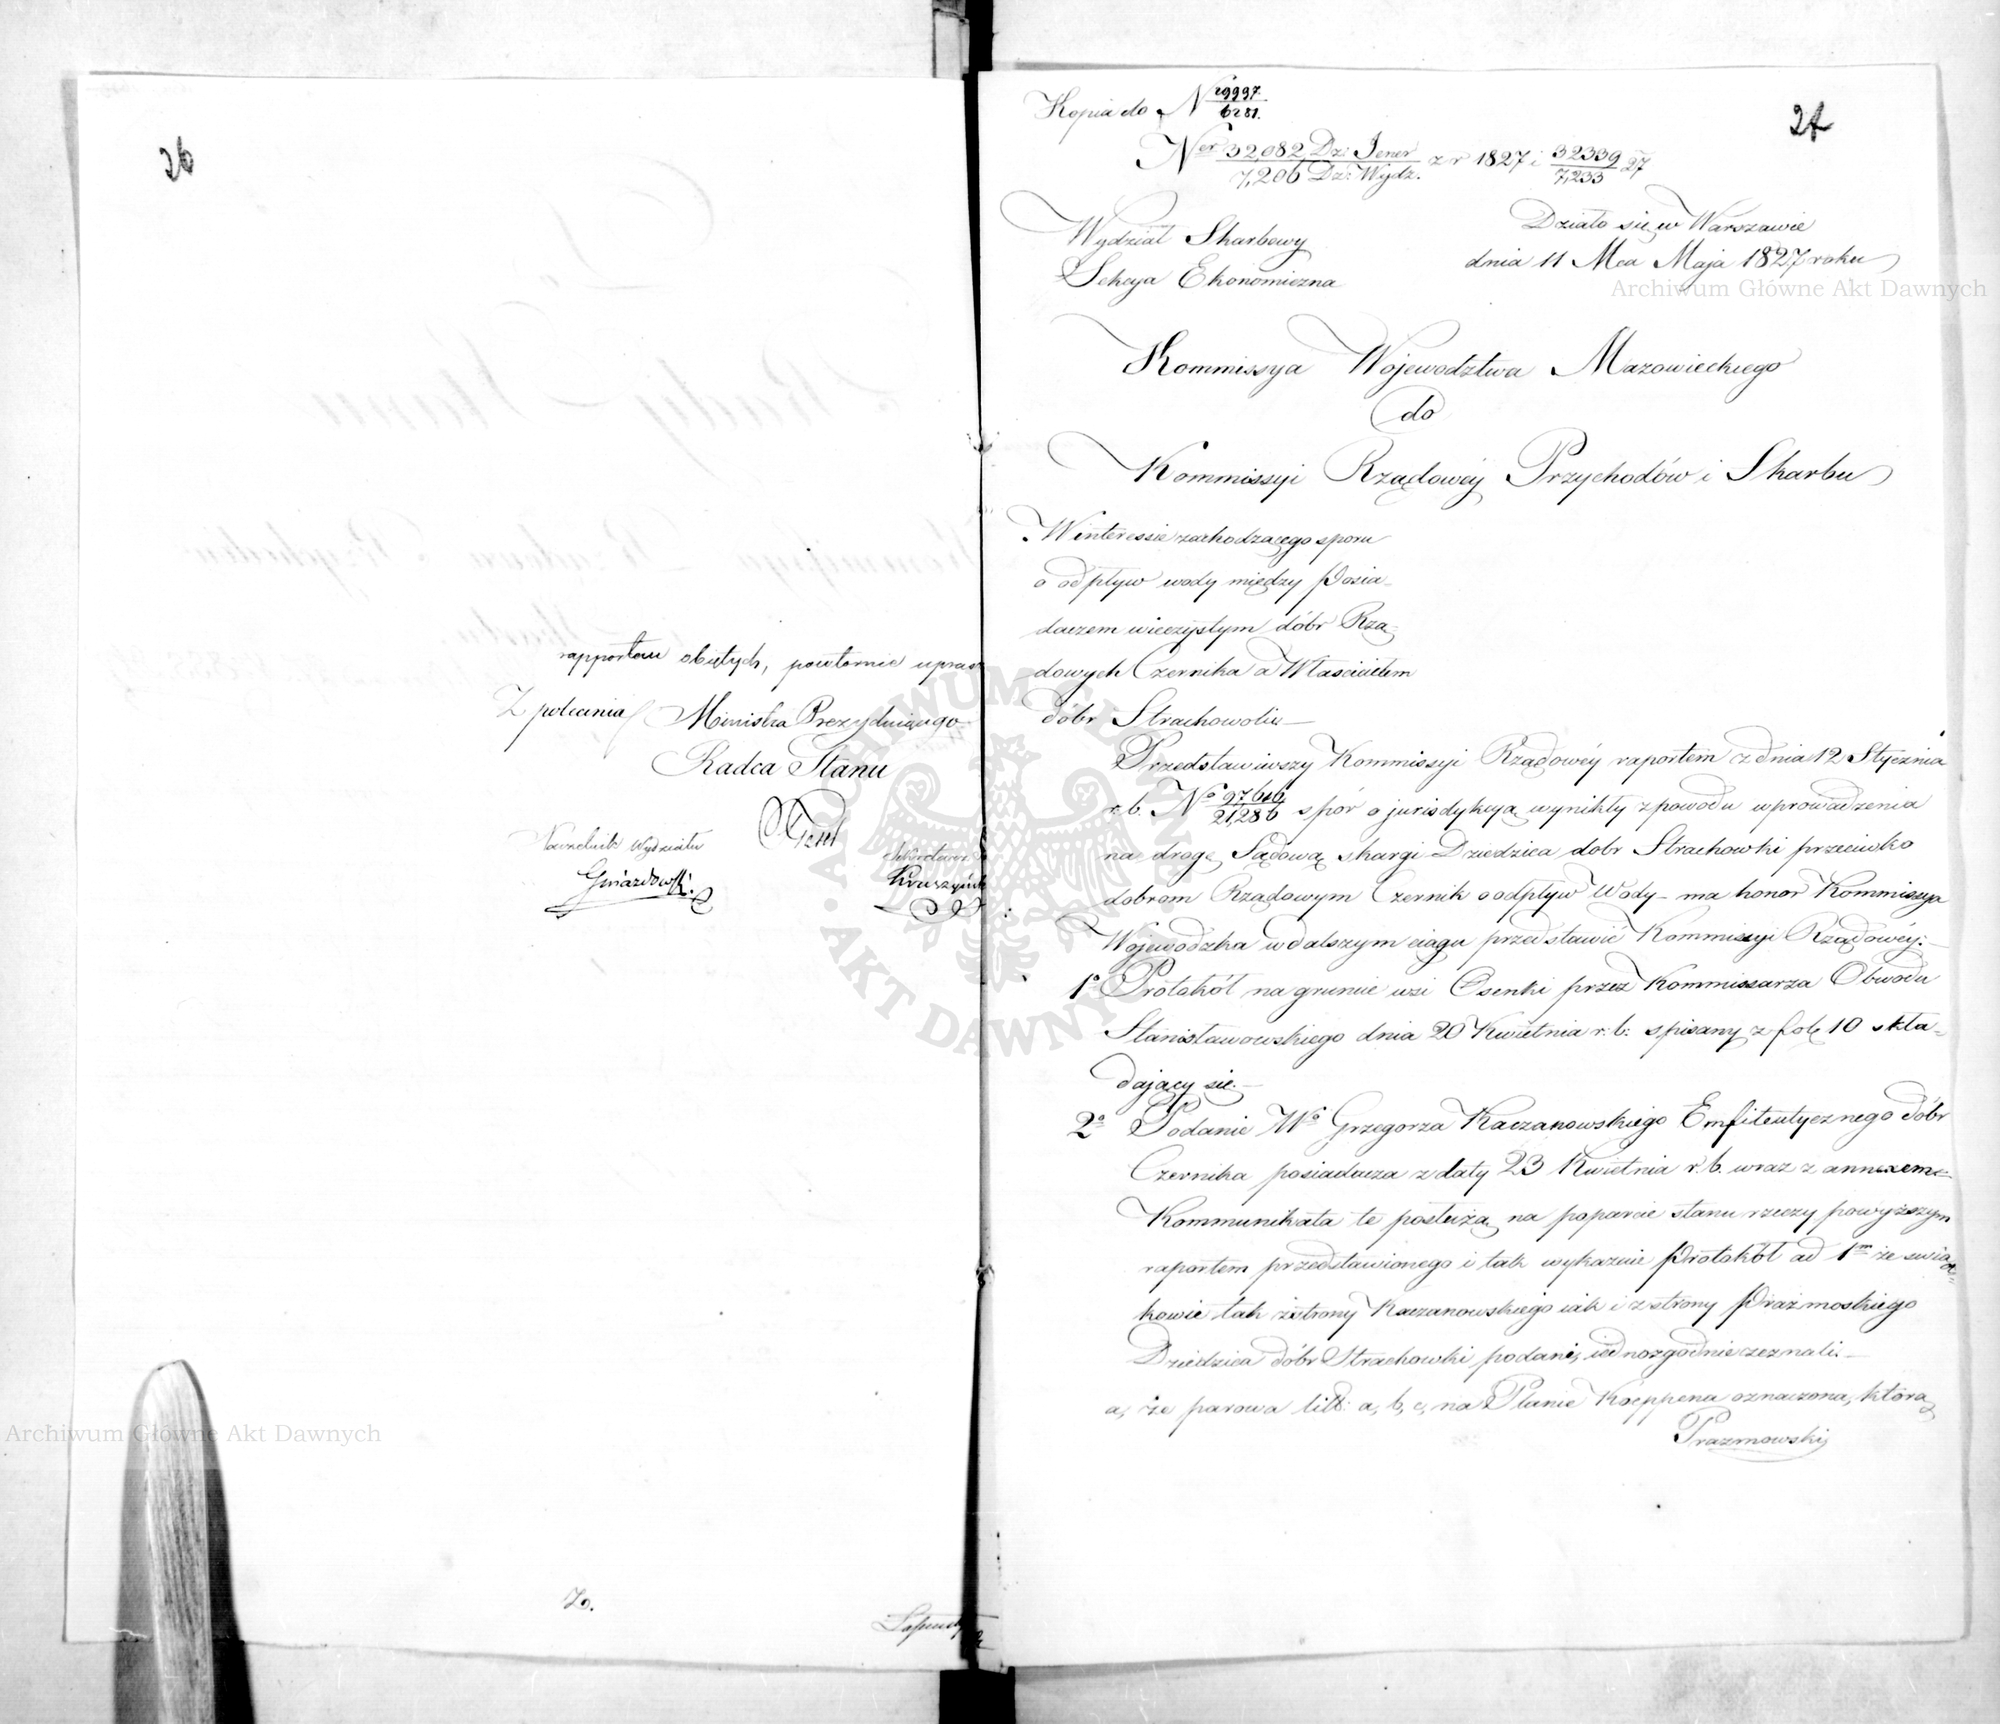 26
rapportem obiętych, powtornie uprasz
Z polecenia Ministra Prezydującego
Radca Stanu
Naczelnik Wydziału
Sekretarz
Gwiazdowski
Kruszyńsk
Kopia do N 29997.
6281.
27
Ner 32,082 Dz: Jener z r 1827 i 32339 27
7,206 Dz: Wydz. 7,233
Wydział Skarbowy
Sekcya Ekonomiczna
Działo się w Warszawie
dnia 11 Mca Maja 1827 roku
Kommissya Województwa Mazowieckiego
do
Kommissyi Rządowéy Przychodów i Skarbu
W interessie zachodzącego sporu
o odpływ wody między Posia-
daczem wieczystym dóbr Rzą-
dowych Czernika a Właścicielem
dóbr Strachowolic
Przedstawiwszy Kommissyi Rządowéy raportem z dnia 12 Stycznia
r. b. No 97646 spór o jurisdykcyą wynikły z powodu wprowadzenia
21,286
na drogę Sądową skargi Dziedzica dobr Strachowki przeciwko
dobrom Rządowym Czernik o odpływ Wody - ma honor Kommissya
Wojewodzka w dalszym ciągu przedstawić Kommissyi Rządowéy:
1o Protokół na gruncie wsi Osenki przez Kommissarza Obwodu
Stanisławowskiego dnia 20 Kwietnia r. b. spisany z fol. 10 skła-
dający się.
2o Podanie Wo Grzegorza Kaczanowskiego Emfiteutycznego dóbr
Czernika posiadacza z daty 23 Kwietnia r. b. wraz z annexem
Kommunikata te posłużą na poparcie stanu rzeczy powyższym
raportem przedstawionego i tak wykazuie Protokół ad 1m że świad-
kowie tak z strony Kaczanowskiego iak i z strony Prażmoskiego
Dziedzica dóbr Strachowki podani, iednozgodnie zeznali
a, że parowa litt: a, b, c, na Planie Koeppena oznaczona, którą
Prazmowski
Archiwum Główne Akt Dawnych
Archiwum Główne Akt Dawnych
ARCHIWUM GŁÓWNE AKT DAWNYCH